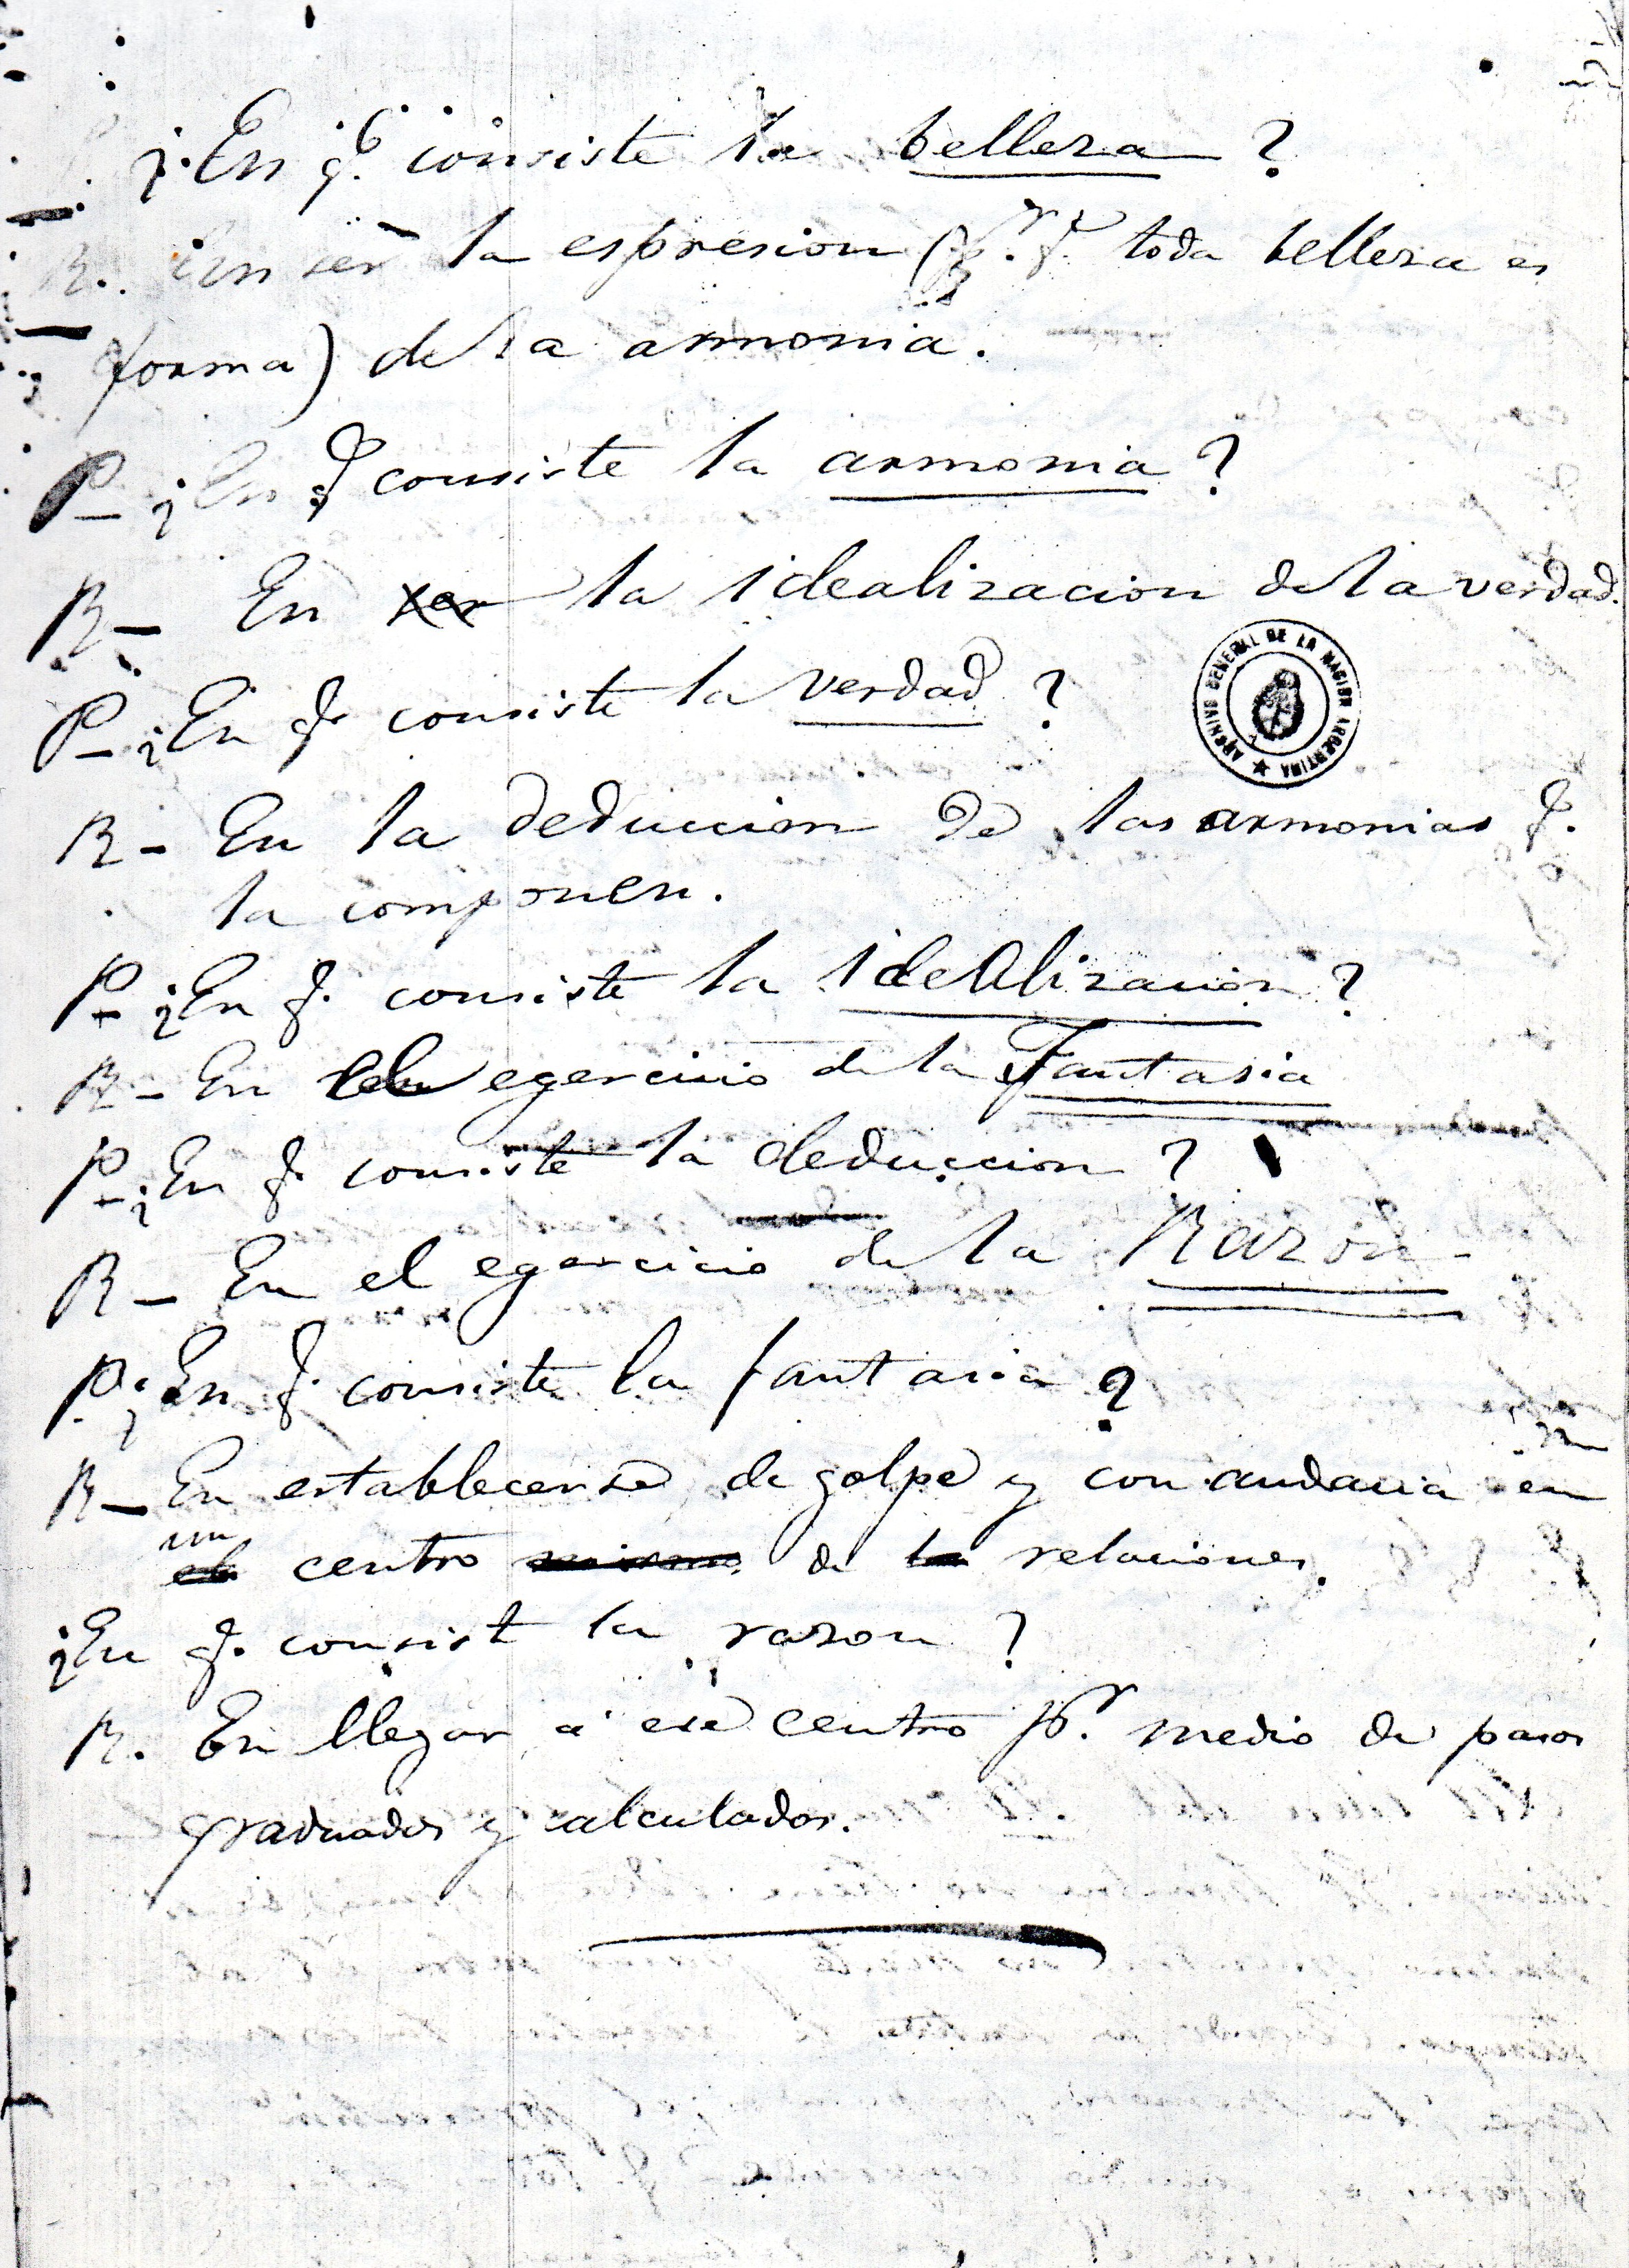 ¿En q.e consiste la belleza ?
R. En ser la espresion (p.r q.e toda belleza es
forma) de la armonia.
P- ¿En q.e consiste la armonia ?
R- En ser la idealizacion de la verdad.
P- ¿En q.e consiste la verdad ?
ARCHIVO GENERAL DE LA NACION ARGENTINA
R- En la deduccion de las armonias q.e
la componen.
P- ¿En q.e consiste la idealizacion ?
R- En el egercicio de la Fantasia
P- ¿En q.e consiste la deduccion ?
R- En el egercicio de la Razon-
P. ¿En q.e consiste la fantasia ?
R- En establecerse de golpe y con audacia en
un
el centro mismo de la relaciones.
¿En q.e consist la razon ?
R. En llegar á ese centro p.r medio de pasos
graduados y calculados.